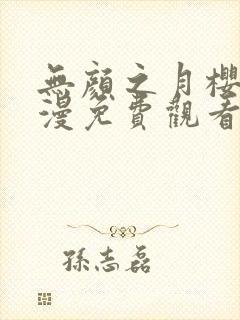 無顏之月櫻
漫免費觀看
孫志磊